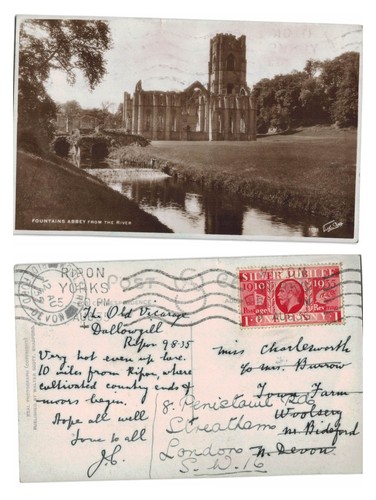 FOUNTAINS ABBEY FROM THE RIVER
RIPON
YORKS
DEVON
POST
SILVER JUBILEE
1910 1935
The Old Vicarage
Dallowgill
Ripon 9·8·35
Very hot even up here.
10 miles from Ripon, where
cultivated country ends &
moors begin.
Hope all well
Love to all
J.C
Miss Charlesworth
c/o Mr. Burrow
Town Farm
Woolsery
Nr Bideford
N. Devon
8. Penistowl Rd
Streatham
London
S.W.16